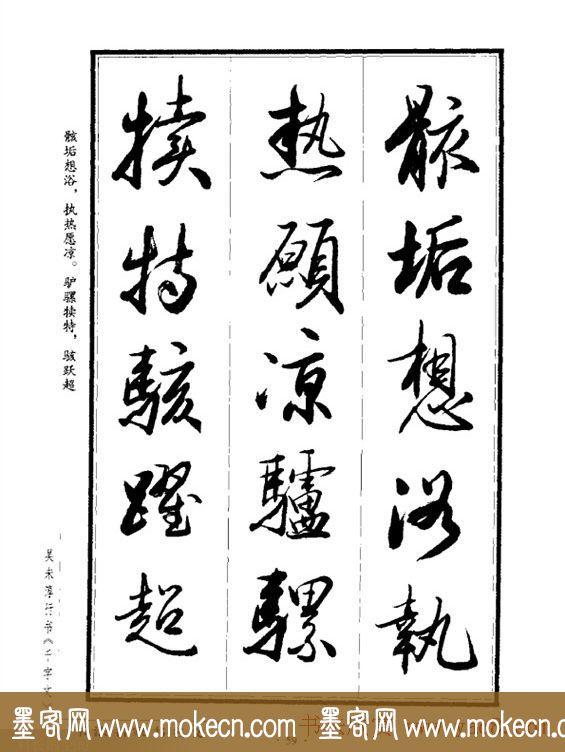 骸垢想浴執
热願凉驢騾
犊特駭躍超
骸垢想浴，执热愿凉。驴骡犊特，骇跃超
吴未淳行书《千字文
墨客网 www.mokecn.com 墨客网 www.mokecn.com